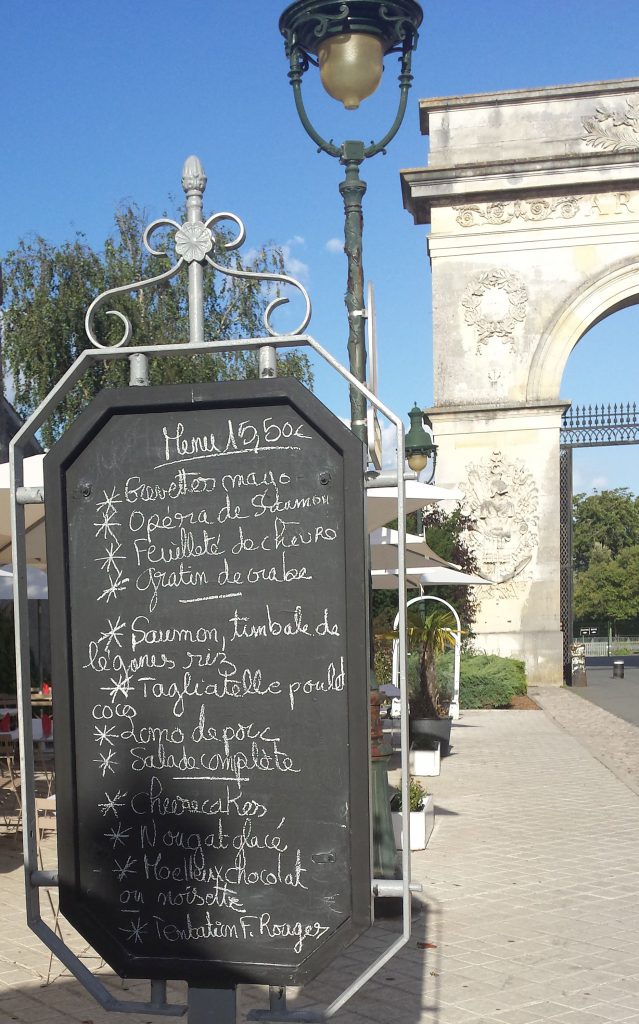 Menu 15,50€
* Crevettes mayo
* Opéra de Saumon
* Feuilleté de chèvre
* Gratin de crabe
* Saumon, timbale de
légumes riz
* Tagliatelle poulet
coco
* Lomo de porc
* Salade complète
* Cheesecakes
* Nougat glacé
* Moelleux chocolat
ou noisette
* Tentation F. Rouges
AR